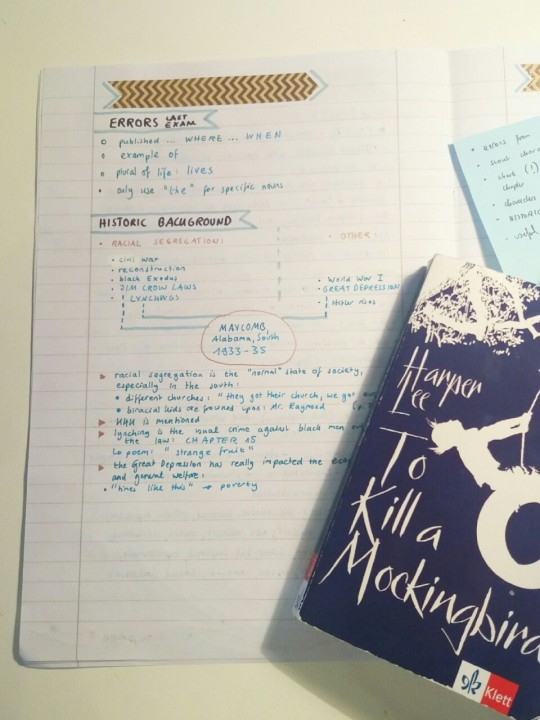 ERRORS LAST EXAM
published ... WHERE ... WHEN
example of
plural of life: lives
only use "the" for specific nouns
HISTORIC BACKGROUND
RACIAL SEGREGATION:
civil war
reconstruction
black Exodus
JIM CROW LAWS
LYNCHINGS
OTHER:
World War I
GREAT DEPRESSION
Hitler rises
MAYCOMB,
Alabama, South
1933-35
racial segregation is the "normal" state of society,
especially in the south:
different churches: "they got their church, we got our
biracial kids are frowned upon: Mr. Raymond (p.
KKK is mentioned
lynching is the usual crime against black men
the law: CHAPTER 15
poem: "strange fruit"
the Great Depression has really impacted the eco
and general welfare:
"times like this" → poverty
errors from
short
chapter
characters
HISTORIC
useful
Harper
Lee
To
Kill a
Mockingbird
Klett